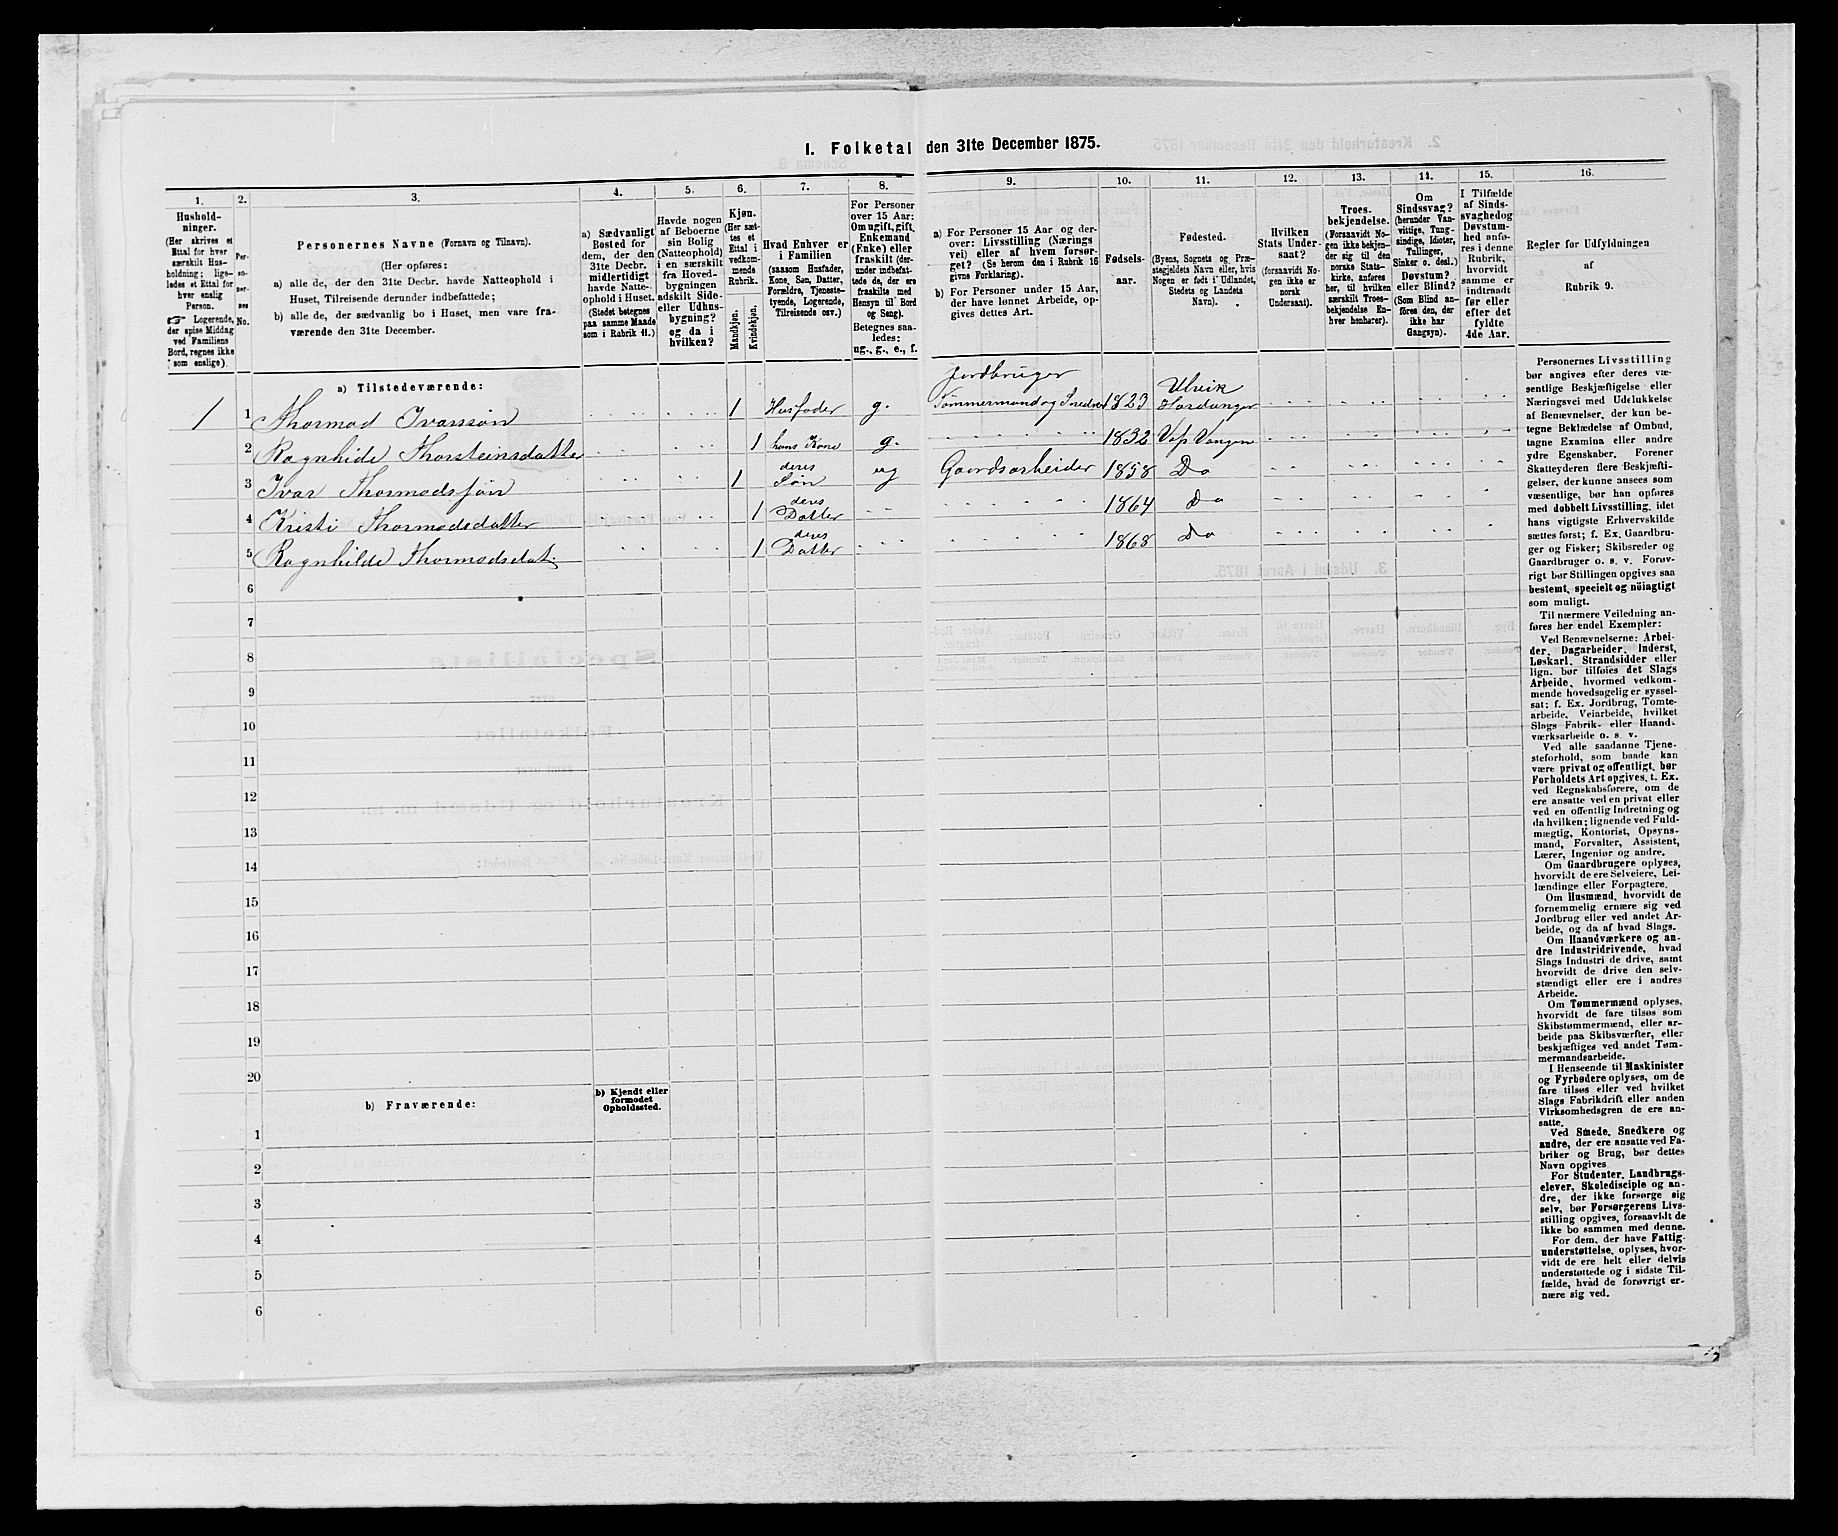 I. Folketal den 31te December 1875.
1. 2. 3. 4. 5. 6. 7. 8. 9. 10. 11. 12. 13. 14. 15. 16.
Hushold-
ninger.
(Her skrives et
Ettal for hver
særskilt Hus-
holdning; lige-
ledes et Ettal for
hver enslig
Person.
☞ Logerende,
der spise Middag
ved Familiens
Bord, regnes ikke
som enslige).
Per-
so-
ner-
nes
No.
Personernes Navne (Fornavn og Tilnavn).
(Her opføres:
a) alle de, der den 31te Decbr. havde Natteophold i
Huset, Tilreisende derunder indbefattede;
b) alle de, der sædvanlig bo i Huset, men vare fra-
værende den 31te December.
a) Sædvanligt
Bosted for
dem, der den
31te Decbr.
midlertidigt
havde Natte-
ophold i Huset.
(Stedet betegnes
paa samme Maade
som i Rubrik 11.)
Havde nogen
af Beboerne
sin Bolig
(Natteophold)
i en særskilt
fra Hoved-
bygningen
adskilt Side-
eller Udhus-
bygning?
og da i
hvilken?
Kjøn.
(Her sæt-
tes et
Ettal i
vedkom-
mende
Rubrik.
Mandkjøn.
Kvindekjøn.
Hvad Enhver er
i Familien
(saasom Husfader,
Kone, Søn, Datter,
Forældre, Tjeneste-
tyende, Logerende,
Tilreisende osv.)
For Personer
over 15 Aar:
Om ugift, gift,
Enkemand
(Enke) eller
fraskilt (der-
under indbefat-
tede de, der ere
fraskilte med
Hensyn til Bord
og Seng).
Betegnes saa-
ledes:
ug., g., e., f.
a) For Personer 15 Aar og der-
over: Livsstilling (Nærings
vei) eller af hvem forsør-
get? (Se herom den i Rubrik 16
givne Forklaring).
b) For Personer under 15 Aar,
der have lønnet Arbeide, op-
gives dettes Art.
Fødsels-
aar.
Fødested.
(Byens, Sognets og Præ-
stegjeldets Navn eller, hvis
Nogen er født i Udlandet,
Stedets og Landets
Navn).
Hvilken
Stats Under-
saat?
(forsaavidt No-
gen ikke er
norsk
Undersaat).
Troes-
bekjendelse.
(Forsaavidt No-
gen ikke bekjen-
der sig til den
norske Stats-
kirke, anføres
her, til hvilken
særskilt Troes-
bekjendelse En-
hver henhører).
Om
Sindssvag?
(herunder Van-
vittige, Tung-
sindige, Idioter,
Tullinger,
Sinker o. desl.)
Døvstum?
eller Blind?
(Som Blind an-
føres den, der
ikke har
Gangsyn).
I Tilfælde
af Sinds-
svaghed og
Døvstum-
hed anfø-
res i denne
Rubrik,
hvorvidt
samme er
indtraadt
før eller
efter det
fyldte
4de Aar.
Regler for Udfyldningen
af
Rubrik 9.
a) Tilstedeværende:
Jordbruger
1 1 Thormod Ivarssøn 1 Husfader g. Tømmermand og Snedker 1823 Ulvik Hardanger
2 Ragnhilde Thorsteinsdatter 1 hans Kone g. 1832 Vangen
3 Ivar Thormodssøn 1 deres Søn ug Gaardsarbeider 1858 Do
4 Kristi Thormodsdatter 1 deres Datter 1864 Do
5 Ragnhilde Thormodsdat. 1 deres Datter 1868 Do
6
7
8
9
10
11
12
13
14
15
16
17
18
19
20
b) Fraværende:
b) Kjendt eller
formodet
Opholdssted.
1
2
3
4
5
6
Personernes Livsstilling
bør angives efter deres væ-
sentlige Beskjæftigelse eller
Næringsvei med Udelukkelse
af Benævnelser, der kun be-
tegne Beklædelse af Ombud,
tagne Examina eller andre
ydre Egenskaber. Forener
Skatteyderen flere Beskjæfti-
gelser, der kunne ansees som
væsentlige, bør han opføres
med dobbelt Livsstilling, idet
hans vigtigste Erhvervskilde
sættes først; f. Ex. Gaardbru-
ger og Fisker; Skibsreder og
Gaardbruger o. s. v. Forøv-
rigt bør Stillingen opgives saa
bestemt, specielt og nöiagtigt
som muligt.
Til nærmere Veiledning an-
føres her endel Exempler:
Ved Benævnelserne: Arbei-
der, Dagarbeider, Inderst,
Løskarl, Strandsidder eller
lign. bør tilføies det Slags
Arbeide, hvormed vedkom-
mende hovedsagelig er syssel-
sat; f. Ex. Jordbrug, Tomte-
arbeide, Veiarbeide, hvilket
Slags Fabrik- eller Haand-
værksarbeide o. s. v.
Ved alle saadanne Tjene-
steforhold, som baade kan
være privat og offentligt, bør
Forholdets Art opgives, t. Ex.
ved Regnskabsførere, om de
ere ansatte ved en privat eller
ved en offentlig Indretning og
da hvilken; lignende ved Fuld-
mægtig, Kontorist, Opsyns-
mand, Forvalter, Assistent,
Lærer, Ingeniør og andre.
Om Gaardbrugere oplyses,
hvorvidt de ere Selveiere, Lei-
lændinge eller Forpagtere.
Om Husmænd, hvorvidt de
fornemmelig ernære sig ved
Jordbrug eller ved andet Ar-
beide, og da af hvad Slags.
Om Haandværkere og an-
dre Industridrivende, hvad
Slags Industri de drive, samt
hvorvidt de drive den selv-
stændigt eller ere i andres
Arbeide.
Om Tømmermænd oplyses,
hvorvidt de fare tilsøs som
Skibstømmermænd, eller ar-
beide paa Skibsværfter, eller
beskjæftiges ved andet Tøm-
mermandsarbeide.
I Henseende til Maskinister
og Fyrbødere oplyses, om de
fare tilsøs eller ved hvilket
Slags Fabrikdrift eller anden
Virksomhedsgren de ere an-
satte.
Ved Smede, Snedkere og
andre, der ere ansatte ved Fa-
briker og Brug, bør dettes
Navn opgives.
For Studenter, Landbrugs-
elever, Skoledisciple og an-
dre, der ikke forsørge sig
selv, bør Forsørgerens Livs-
stilling opgives, forsaavidt de
ikke bo sammen med denne.
For dem, der have Fattig-
understøttelse, oplyses, hvor-
vidt de ere helt eller delvis
understøttede og i sidste Til-
fælde, hvad de forøvrigt er-
nære sig ved.